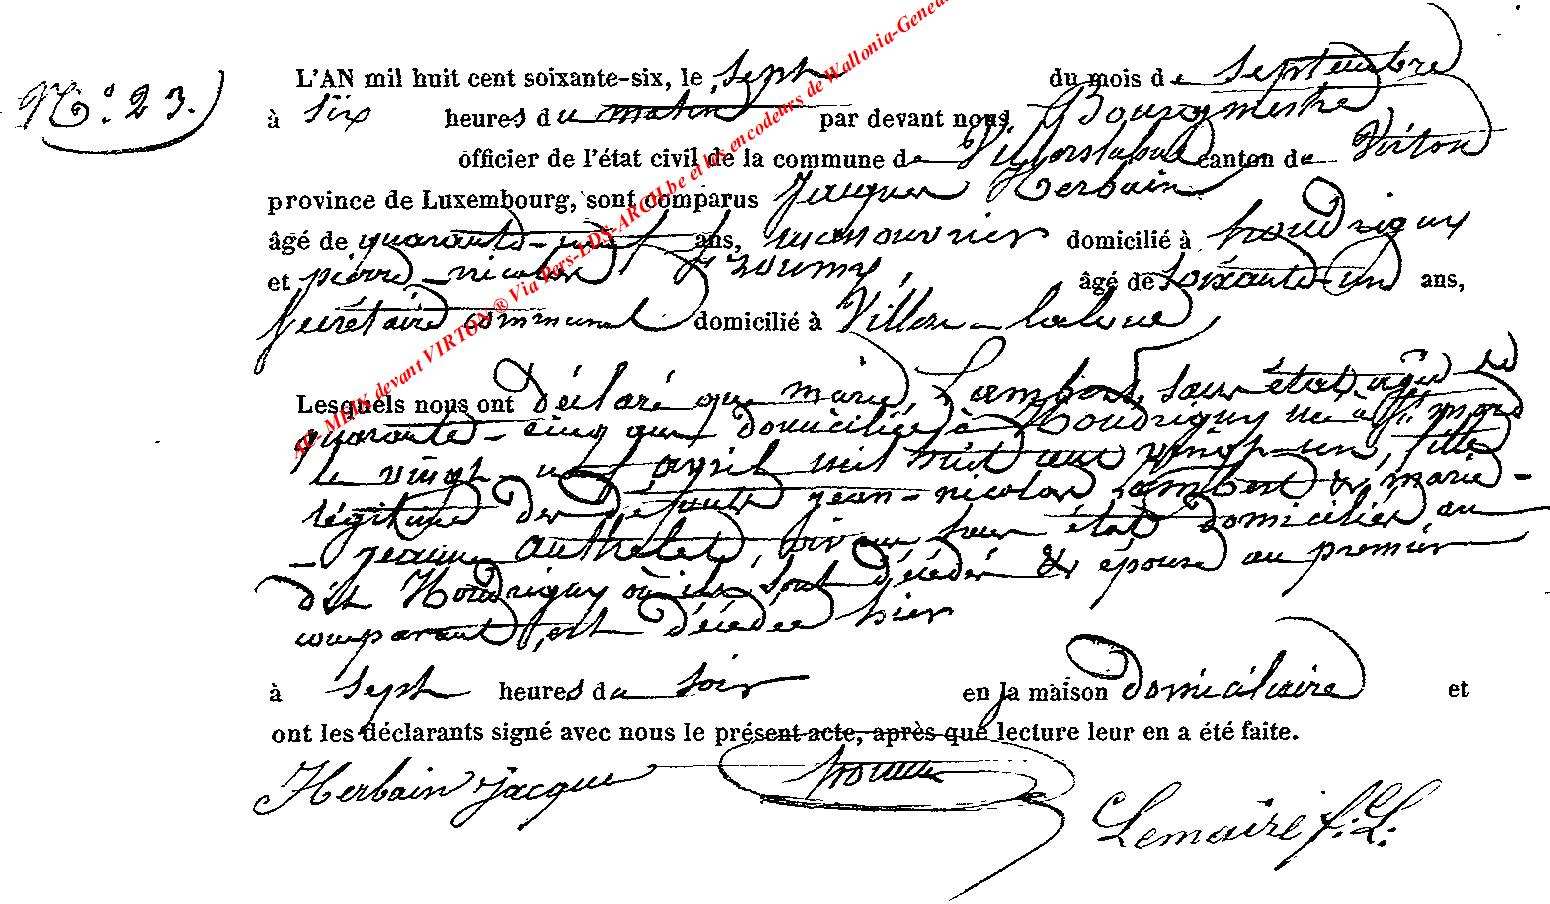 N.º 23.
L'AN mil huit cent soixante-six, le sept du mois de septembre
à six heures du matin par devant nous Bourgmestre
officier de l'état civil de la commune de Villerslaloue canton de Virton
province de Luxembourg, sont comparus Jacques Herbain
âgé de quarante-neuf ans, manouvrier domicilié à houdrigny
et pierre-nicolas âgé de soixante-un ans,
secrétaire communal domicilié à Villers-laloue,
Lesquels nous ont déclaré que marie Lambert, sans état, âgée de
quarante-cinq ans domiciliée à houdrigny née à St mard
le vingt neuf avril mil huit cent vingt-un, fille
légitime des défunts jean-nicolas Lambert & marie-
-jeanne authelet, vivans sans état domiciliés au
dit Houdrigny où ils sont décédés & épouse au premier
comparant, est décédée hier
à sept heures du soir en la maison domiciliaire et
ont les déclarants signé avec nous le présent acte, après que lecture leur en a été faite.
Herbain jacque
Lemaire f. L.
AD-METIS devant VIRTON ® Via Pers-LDS-ARCH.be et les encodeurs de Wallonia-Genea